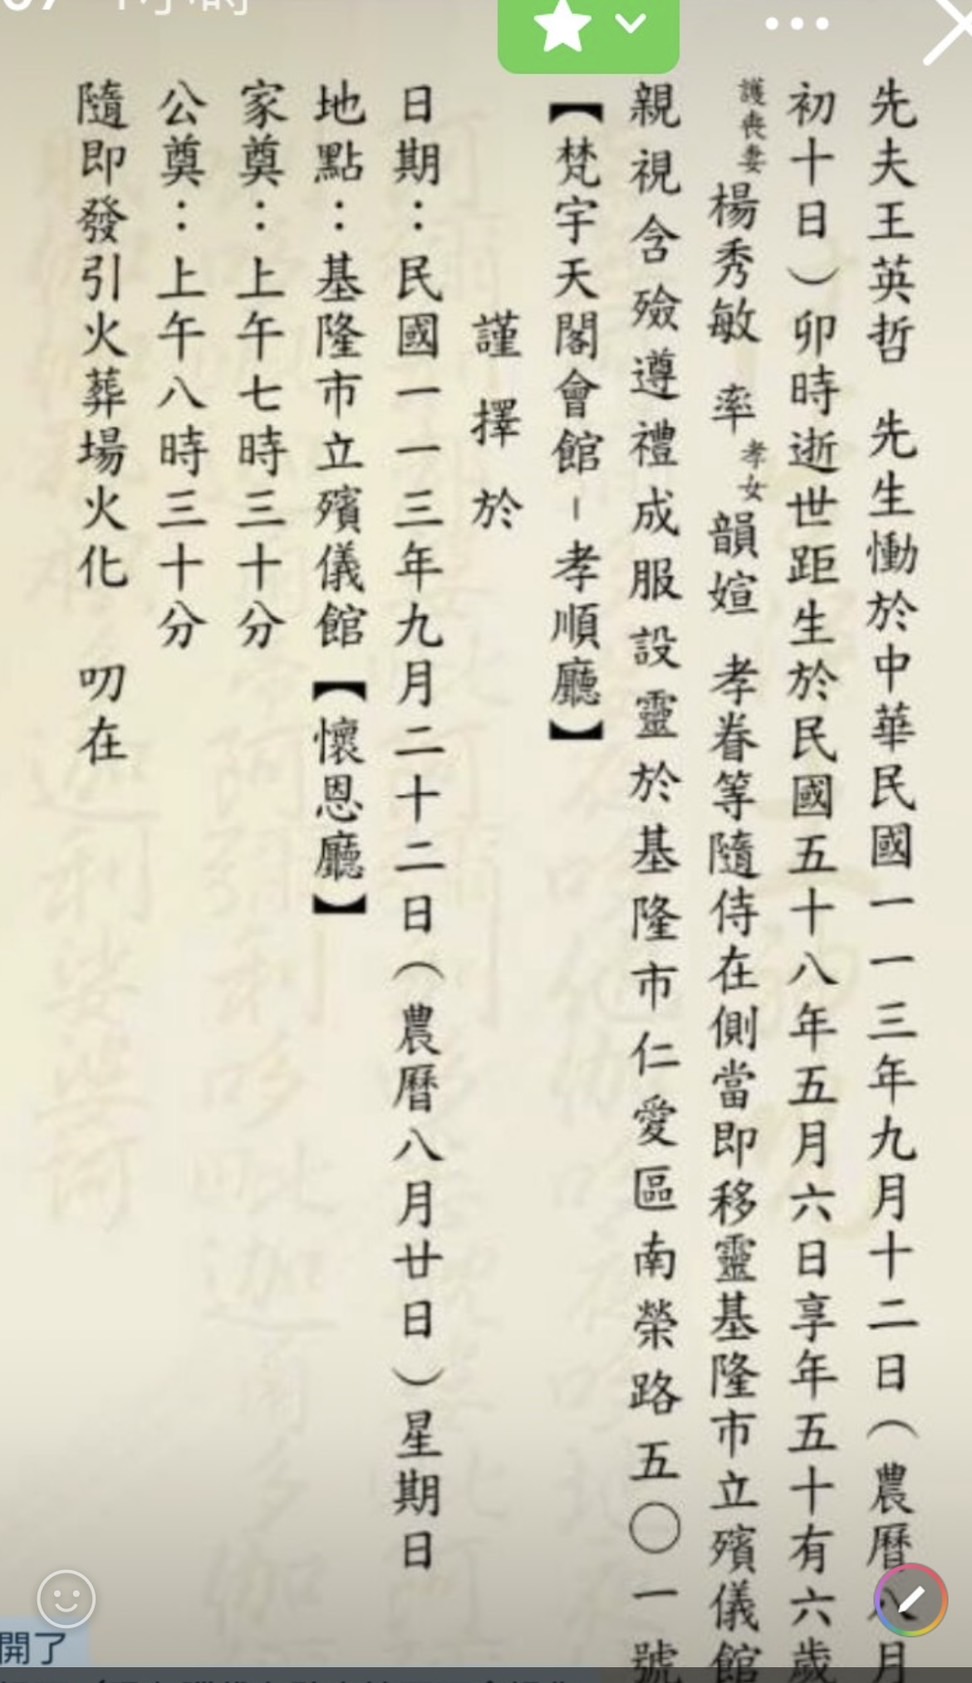 先夫王英哲　先生慟於中華民國一一三年九月十二日（農曆八月
初十日）卯時逝世距生於民國五十八年五月六日享年五十有六歲
護喪妻楊秀敏　率孝女韻媗　孝眷等隨侍在側當即移靈基隆市立殯儀館
親視含殮遵禮成服設靈於基隆市仁愛區南榮路五〇一號
【梵宇天閣會館－孝順廳】
謹擇於
日期：民國一一三年九月二十二日（農曆八月廿日）星期日
地點：基隆市立殯儀館【懷恩廳】
家奠：上午七時三十分
公奠：上午八時三十分
隨即發引火葬場火化　叨在
開了